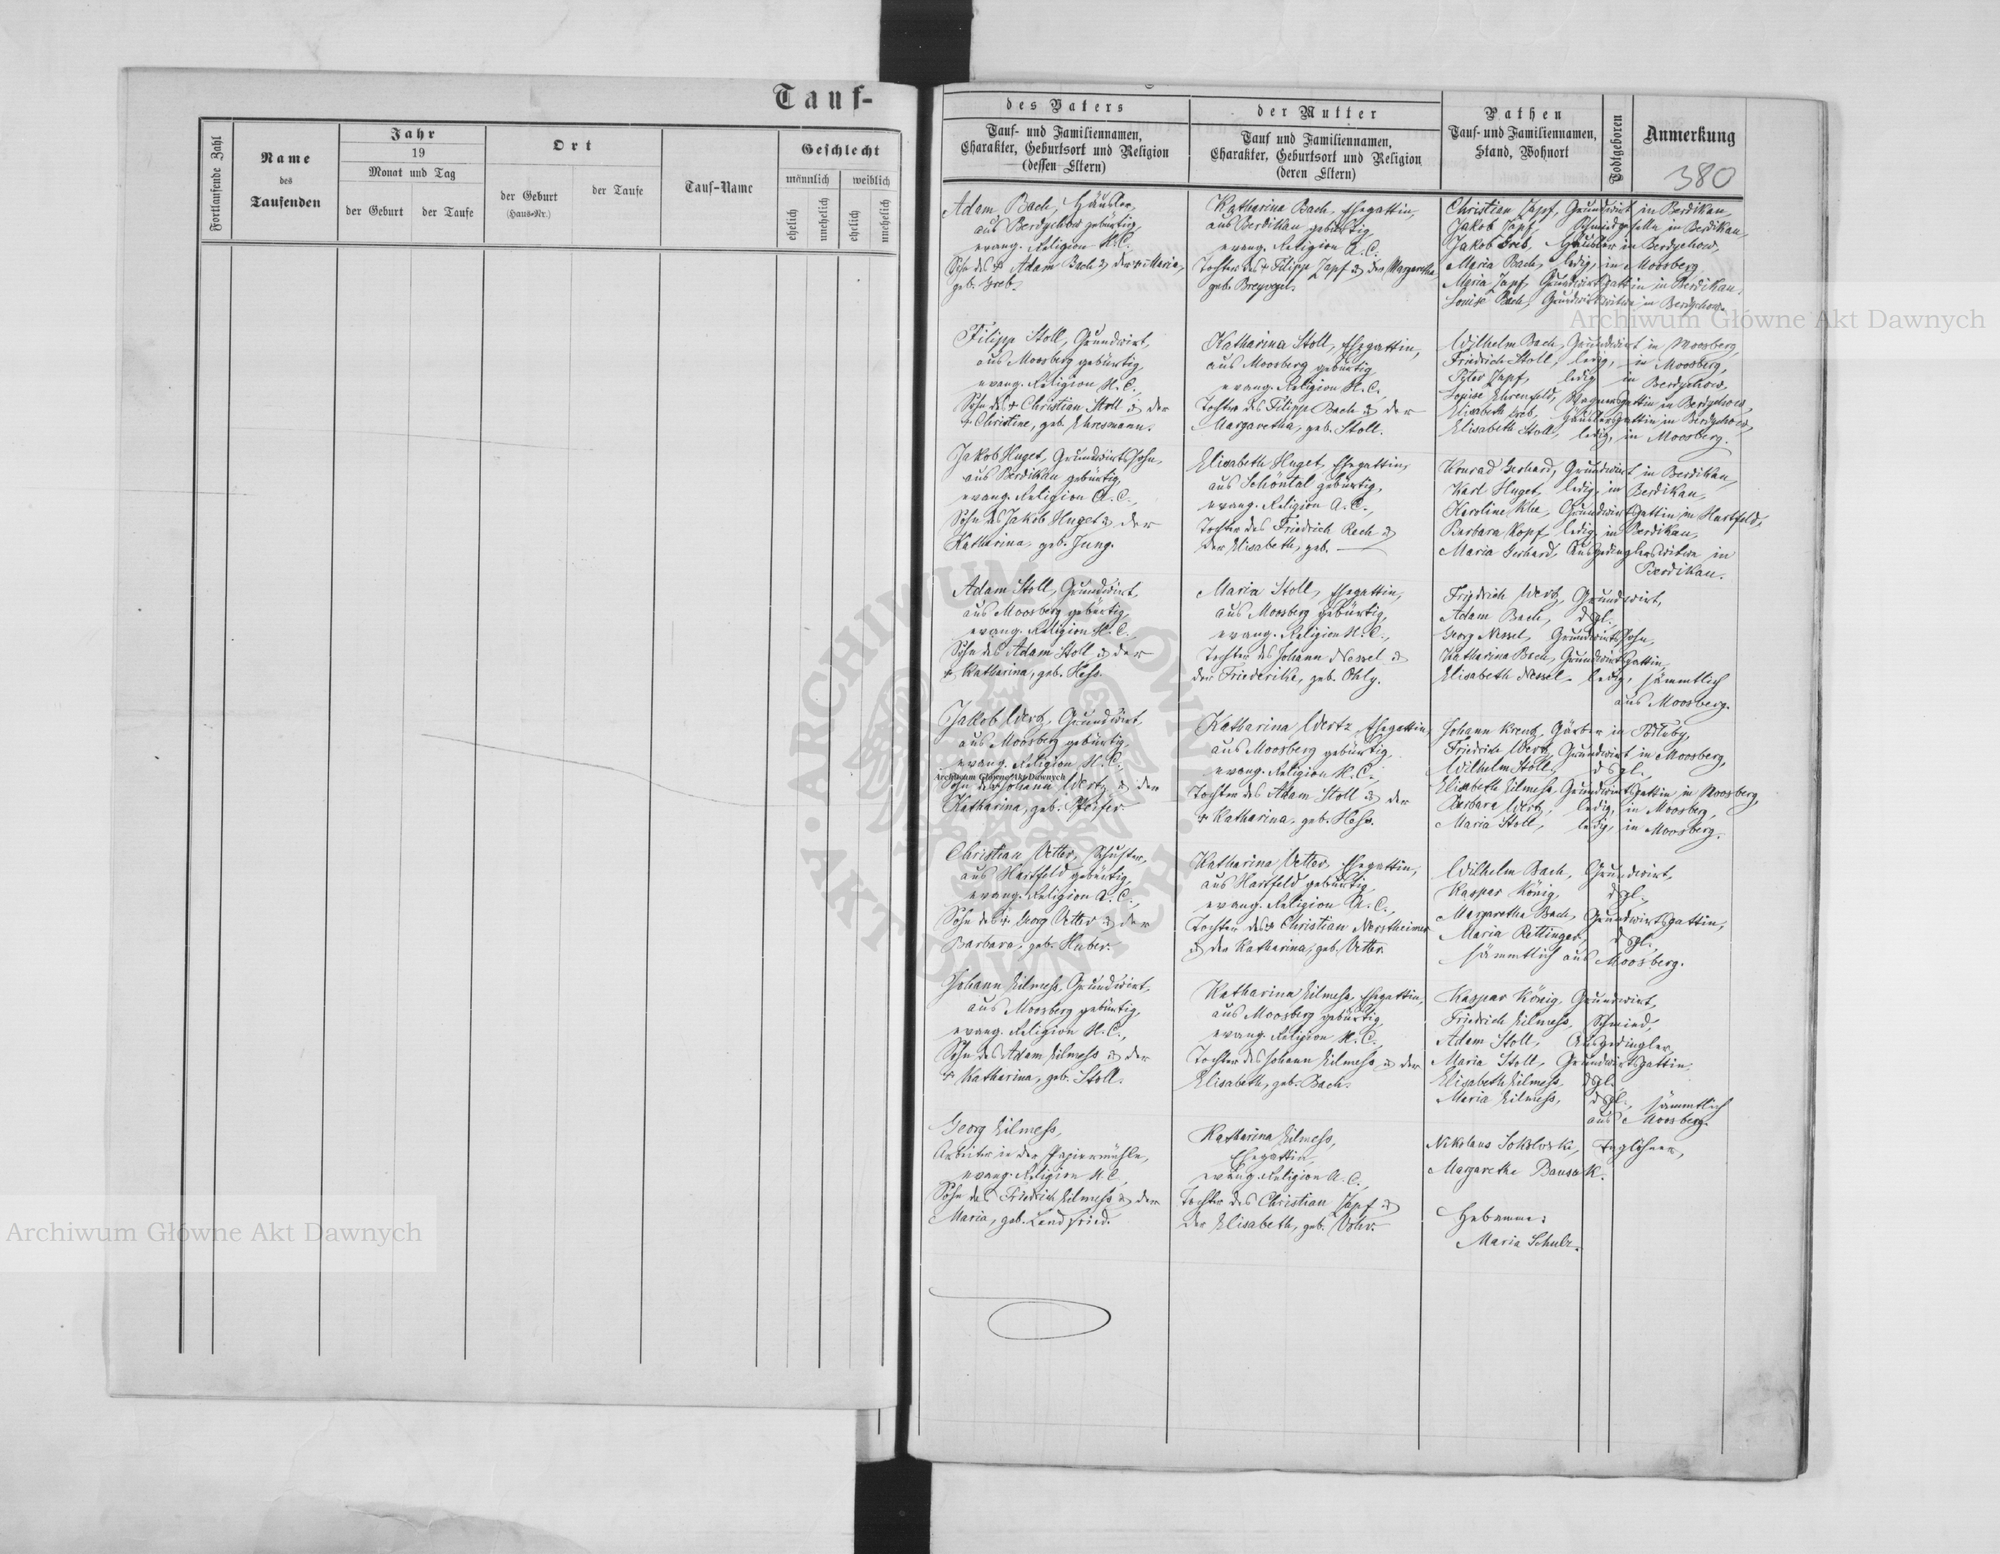 Tauf-
Fortlaufende Zahl
Name
des
Taufenden
Jahr
19
Monat und Tag
der Geburt
der Taufe
Ort
der Geburt
(Haus-Nr.)
der Taufe
Tauf-Name
Geschlecht
männlich
weiblich
ehelich
unehelich
ehelich
unehelich
des Vaters
Tauf- und Familiennamen,
Charakter, Geburtsort und Religion
(dessen Eltern)
der Mutter
Tauf und Familiennamen,
Charakter, Geburtsort und Religion
(deren Eltern)
Pathen
Tauf- und Familiennamen,
Stand, Wohnort
Todtgeboren
Anmerkung
380
Adam Bach, Häusler,
aus Berdychow gebürtig,
evang. Religion H. C.
Sohn des + Adam Bach & der + Maria,
geb. Greb.
Katharina Bach, Ehegattin,
aus Berdikau gebürtig,
evang. Religion A. C.
Tochter des + Filipp Zapf & der Margaretha
geb.
Christian Zapf, Grundwirt in Berdikau,
Jakob Zapf, Schmiedgeselle in Berdikau,
Jakob Greb, Häusler in Berdychow,
Maria Bach, ledig, in Moosberg
Maria Zapf, Grundwirtsgattin in Berdikau,
Louise Bach, Grundwirtswitwe in Berdychow.
Filipp Stoll, Grundwirt,
aus Moosberg gebürtig,
evang. Religion H. C.,
Sohn des + Christian Stoll & der
+ Christine, geb. Ehresmann.
Katharina Stoll, Ehegattin,
aus Moosberg gebürtig,
evang. Religion H. C.,
Tochter des Filipp Bach & der
Margaretha, geb. Stoll.
Wilhelm Bach, Grundwirt in Moosberg,
Friedrich Stoll, ledig, in Moosberg,
Peter Zapf, ledig in Berdychow,
Louise Ehrenfeld, Wagnersgattin in Berdychow,
Elisabeth Greb, Häuslersgattin in Berdychow,
Elisabeth Stoll, ledig, in Moosberg.
Jakob Huget, Grundwirtssohn,
aus Berdikau gebürtig,
evang. Religion A. C.,
Sohn des Jakob Huget & der
Katharina, geb. Jung.
Elisabeth Huget, Ehegattin,
aus Schöntal gebürtig,
evang. Religion A. C.,
Tochter des Friedrich Rech &
der Elisabeth, geb. —
Konrad Gerhard, Grundwirt in Berdikau,
Karl Huget, ledig, in Berdikau,
Karoline Klee, Grundwirtsgattin in Hartfeld,
Barbara Kopf, ledig, in Berdikau,
Maria Gerhard, Ausgedinglerswitwe in
Berdikau.
Adam Stoll, Grundwirt,
aus Moosberg gebürtig,
evang. Religion H. C.,
Sohn des Adam Stoll & der
+ Katharina, geb. Hess.
Maria Stoll, Ehegattin,
aus Moosberg gebürtig,
evang. Religion H. C.,
Tochter des Johann Nessel &
der Friederike, geb. Ohly.
Friedrich Wertz, Grundwirt,
Adam Bach, dsgl.,
Georg Nessel, Grundwirtssohn,
Katharina Bach, Grundwirtsgattin,
Elisabeth Nessel, ledig, sämmtlich
aus Moosberg.
Jakob Wertz, Grundwirt,
aus Moosberg gebürtig,
evang. Religion H. C.,
Archiwum Główne Akt Dawnych
Sohn des Johann Wertz & der
Katharina, geb. Pfeifer.
Katharina Wertz, Ehegattin,
aus Moosberg gebürtig,
evang. Religion H. C.,
Tochter des Adam Stoll & der
+ Katharina, geb. Hess.
Johann Kreutz, Gärber in
Friedrich Wertz, Grundwirt in Moosberg,
Wilhelm Stoll, dsgl.,
Elisabeth Eilmess, Grundwirtsgattin in Moosberg,
Barbara Wertz, ledig, in Moosberg,
Maria Stoll, ledig, in Moosberg.
Christian Vetter, Schuster,
aus Hartfeld gebürtig,
evang. Religion A. C.,
Sohn des + Georg Vetter & der
Barbara, geb. Huber.
Katharina Vetter, Ehegattin,
aus Hartfeld gebürtig,
evang. Religion A. C.,
Tochter des + Christian Nerstheimer
& der Katharina, geb. Vetter.
Wilhelm Bach, Grundwirt,
Kaspar König, dsgl.,
Margaretha Bach, Grundwirtsgattin,
Maria Rettinger, dsgl.,
sämmtlich aus Moosberg.
Johann Eilmess, Grundwirt,
aus Moosberg gebürtig,
evang. Religion H. C.,
Sohn des Adam Eilmess & der
+ Katharina, geb. Stoll.
Katharina Eilmess, Ehegattin,
aus Moosberg gebürtig,
evang. Religion H. C.,
Tochter des Johann Eilmess & der
Elisabeth, geb. Bach.
Kaspar König, Grundwirt,
Friedrich Eilmess, Schmied,
Adam Stoll, Ausgedingler,
Maria Stoll, Grundwirtsgattin,
Elisabeth Eilmess, dsgl.,
Maria Eilmess, dsgl., sämmtlich
aus Moosberg.
Georg Eilmess,
Arbeiter in der Papiermühle,
evang. Religion H. C.,
Sohn des Friedrich Eilmess & der
Maria, geb. Landfried.
Katharina Eilmess,
Ehegattin,
evang. Religion A. C.,
Tochter des Christian Zapf &
der Elisabeth, geb.
Nikolaus Sokolowski, Taglöhner,
Margarethe Bansak.
Hebamme:
Maria Schulz.
Archiwum Główne Akt Dawnych
Archiwum Główne Akt Dawnych
ARCHIWUM GŁÓWNE AKT DAWNYCH